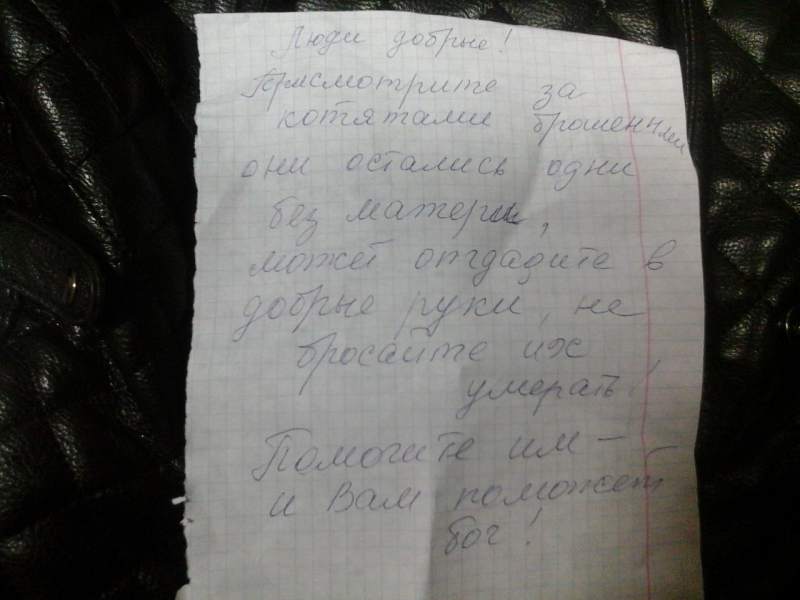 Люди добрые!
Присмотрите за
котятами брошенными
они остались одни
без матери,
может отдадите в
добрые руки, не
бросайте их
умерать!
Помогите им –
и Вам поможет
бог!